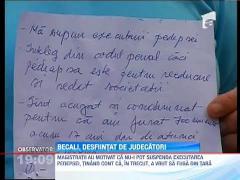 - Mă supun executării
pedepsei
Înțeleg din codul penal că
pedeapsa este pentru reeducare
și redat societății
- Sînt acuzat
pentru că am furat
acum 17 ani
BECALI, DESFIINȚAT DE JUDECĂTORI
OBSERVATOR
19:09
MAGISTRAȚII AU MOTIVAT CĂ NU-I POT SUSPENDA EXECUTAREA
PEDEPSEI, ȚINÂND CONT CĂ, ÎN TRECUT, A VRUT SĂ FUGĂ DIN ȚARĂ